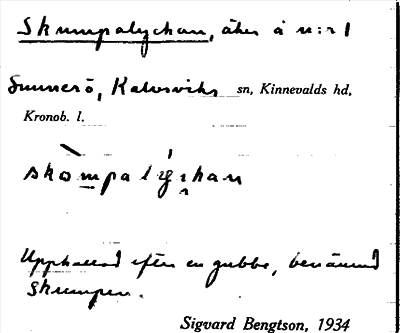 Skumpalyckan, åker å n:r 1
Sunnerö, Kalvsviks sn, Kinnevalds hd,
Kronob. l.
skòmpalýkan
Uppkallad efter en gubbe, benämnd
Skumpen.
Sigvard Bengtson, 1934